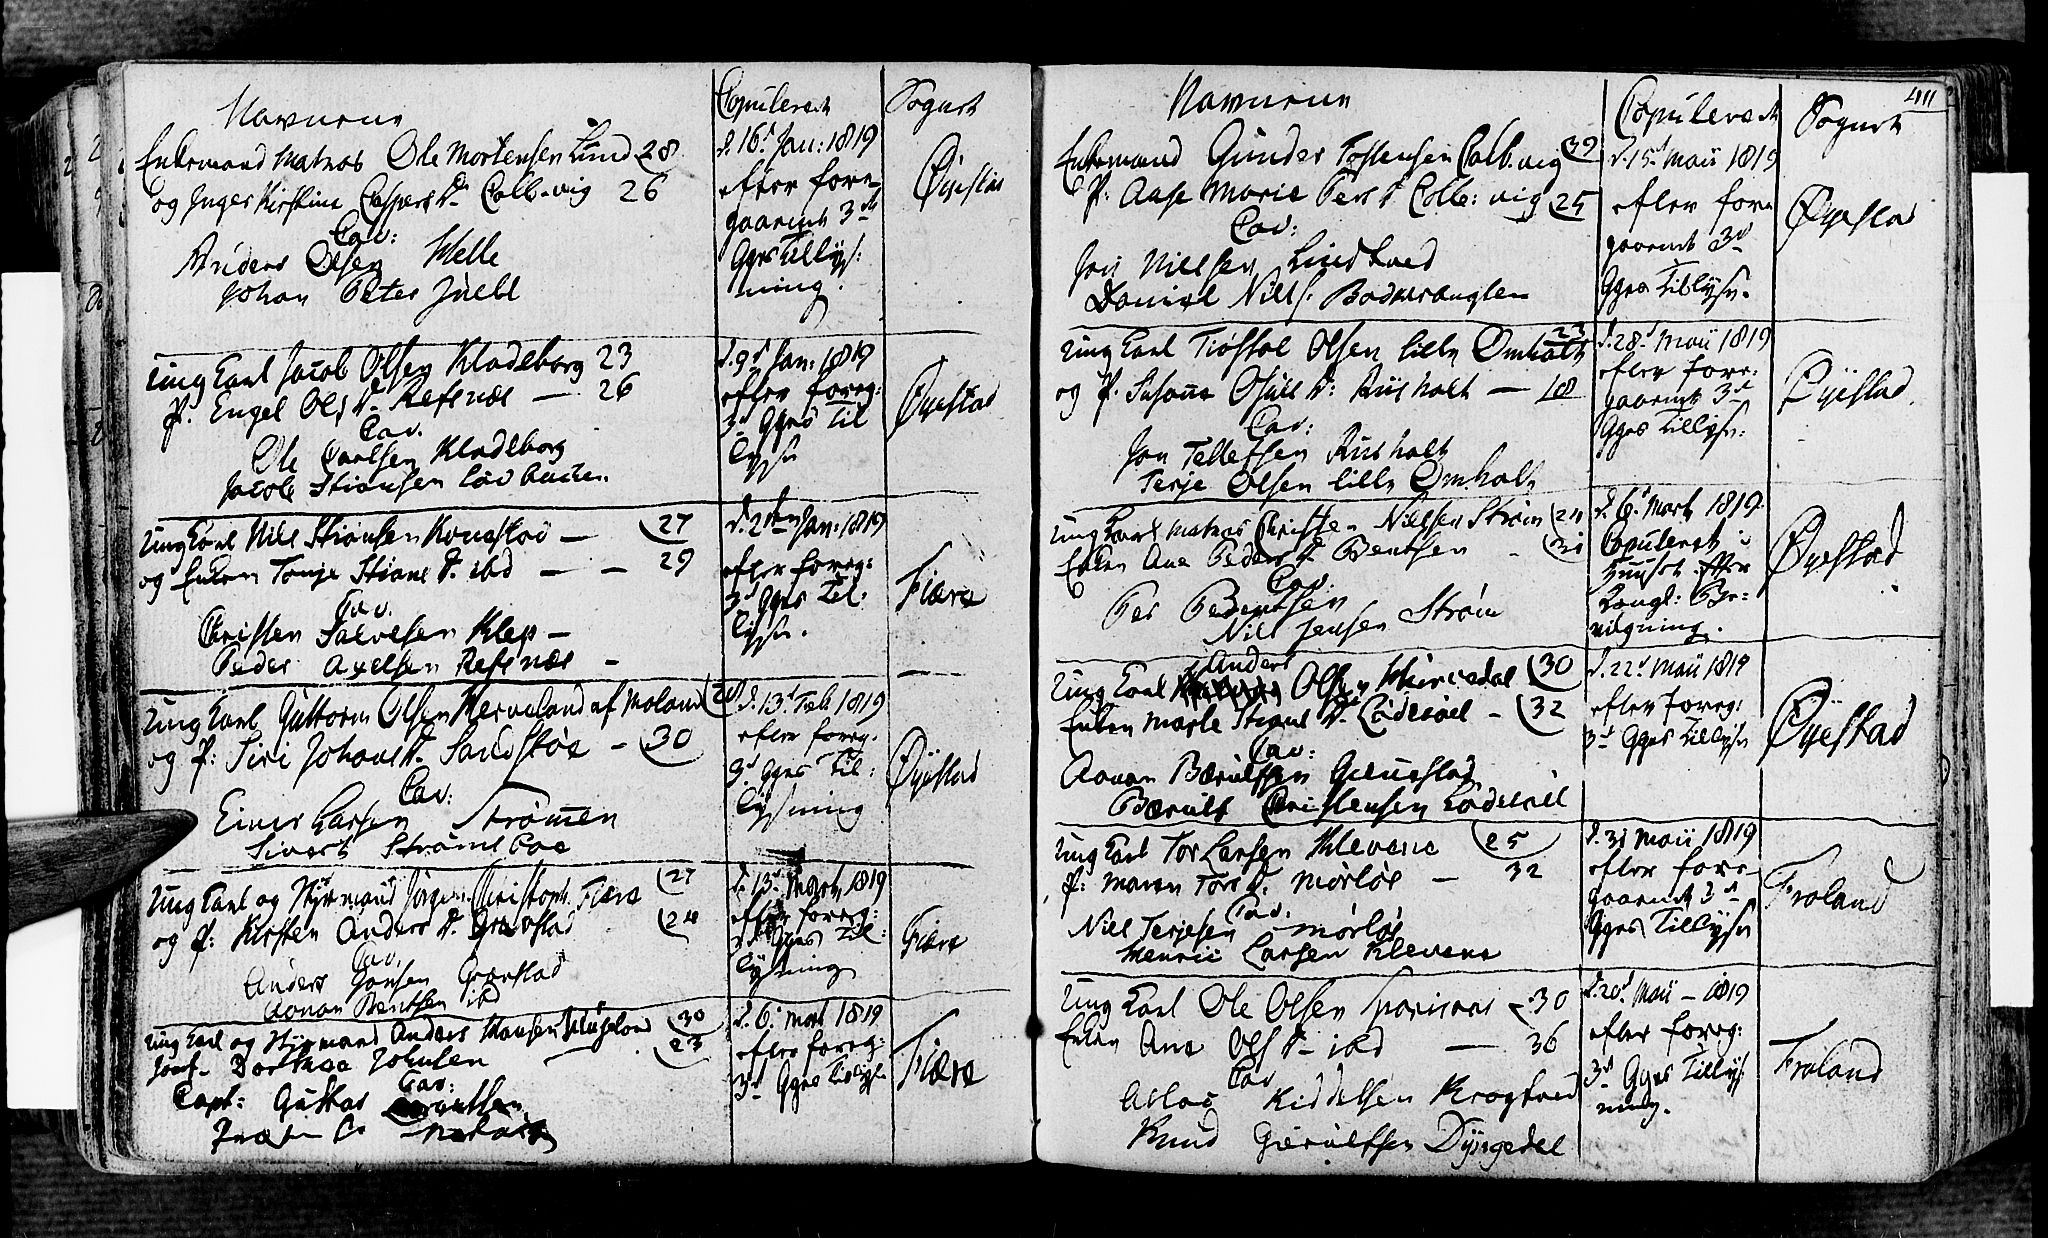 Navnene
Copuleret
Sognet
Enkemand Matros Ole Mortensen Lund 28
og Inger Kirstine Caspersd. Colb.vig 26
Cav:
Anders Olsen Helle
Johan Peter Juell
d. 16d Jan: 1819
efter fore-
gaaende 3de
Gges Tillys:
ning.
Øyestad
Ung Karl Jacob Olsen Kladeborg 23
P. Engel Olsd. Refsnæs — 26
Cav.
Ole Carlsen Kladeborg
Jacob Stiansen
d. 9d Jan: 1819
efter foreg:
3d Gges Til
lysn
Øyestad
Ung Karl Niels Stiansen — 27
og Enken Tonje Stiansd. ibd — — 29
Cav.
Christen Salvesen Klep —
Peder Axelsen Refsnæs —
d. 2den Jan: 1819
efter foreg:
3d Gges Til:
lysn.
Fiære
Ung Karl Guttorm Olsen af Moland
og P: Siri Johansd. Sandskoe — 30
Cav:
Einer Larsen Strømmen
Sivert Strøms Boe
d. 13d Feb 1819
efter foreg.
3d Gges Til:
lysning
Øyestad
Ung Karl og Styrmand Jørgen Christoph. Fiære 27
og P: Kirsten Andersd. Grøvstad
Cav.
Anders Jonsen
Aanon Bentsen ibd
d. 13d Marts 1819
efter foreg:
3d Gges Til:
lysning
Fiære
Ung Karl og Styrmand Anders Hansen 30
Jomf- Dorthea Johnsen 23
Cav:
Capt: Gustav
d. 6. Mart 1819
efter foreg:
3d Gges Tillys
Fiære
Navnene
Copuleret
Sognet
411
Enkemand Gunder Tostensen Colb.vig 39
P: Aase Marie Persd. Colb: vig 25
Cav:
Jens Nielsen Lindtved
Daniel Niels.
d. 15d Maii 1819
efter fore
gaaende 3d
Gges Tillysn.
Øyestad
Ung Karl Tiøstol Olsen lille Omholt 23
og P. Susanne Osulsd: Riisholt — 18
Cav:
Jon Tellefsen Riisholt
Terje Olsen lille Omholt
d. 28d Maii 1819
efter fore-
gaaende 3d
Gges Tillysn:
Øyestad
Ung Karl Matros Christen Nielsen Strøm
Enken Ane Pedersd. Bentsen
Cav.
Per Berntsen
Niels Jensen Strøm
d. 6d Mart 1819
Copuleret i
Huuset efter
Kongl: Be-
vilgning.
Øyestad
Anders
Ung Karl Olsen 30
Enken Marte Stiansd. Lødesøel — 32
Cav:
Aanon Berulfsen
Berulf Christensen Lødesøel
d. 22d Maii 1819
efter foreg:
3d Gges Tillysn
Øyestad
Ung Karl Tor Larsen Klevene 25
P: Maren Torsd. Mørløs — 32
Cav.
Niels Terjesen Mørløs
Henric Larsen Klevene
d. 31 Maii 1819
efter fore-
gaaende 3d
Gges Tillysn
Froland
Ung Karl Ole Olsen 30
Enken Ane Olsd — ibd — 36
Cav
Aslac Kiddelsen Kragtved
Knud Gierulfsen Dyngedal
d. 20d Maii — 1819
efter foreg:
3d Gges Tillys
ning.
Froland